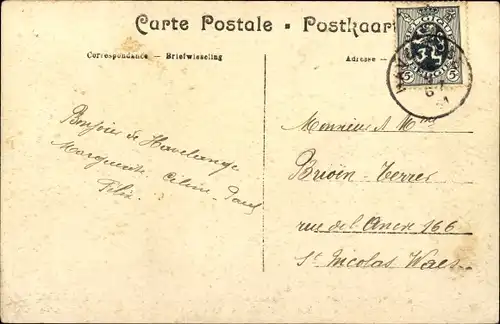 Carte Postale - Postkaart
Correspondance — Briefwisseling
Adresse —
BELGIQUE
5 5
Bonjour de Havelange
Marguerite. Céline - Paul
Félix.
Monsieur & Mme
Brioen - Terres
rue de l'Ancre 166
St Nicolas Waes